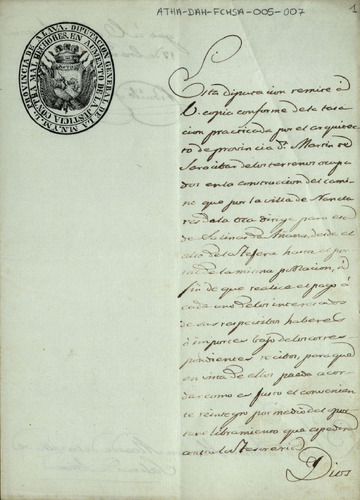 ATHA-DAH-FCHSA-005-007
1
DIPUTACION GENERAL DE LA M.N. Y M.L. PROVINCIA DE ALAVA
EN AUMENTO DE LA JUSTICIA CONTRA MALHECHORES
Esta diputacion remite á
V. copia conforme de la tasa
cion practicada por el arquitecto
de provincia Dn. Martin de
Saracibar de los terrenos ocupa
dos en la construccion del camino
que por la villa de Nancla
res de la Oca dirige para el de
de Salinas de Añana, desde el
alto de la Tejera hasta el por
tal de la misma poblacion, á
fin de que realice el pago á
cada uno de los interesados
de sus respectivos haberes
ó importes bajo de los corres
pondientes recibos, para que
en vista de ellos pueda acor
dar como es justo el convenien
te reintegro por medio del opor
tuno libramiento que expedirá
contra la Tesoreria.
Dios